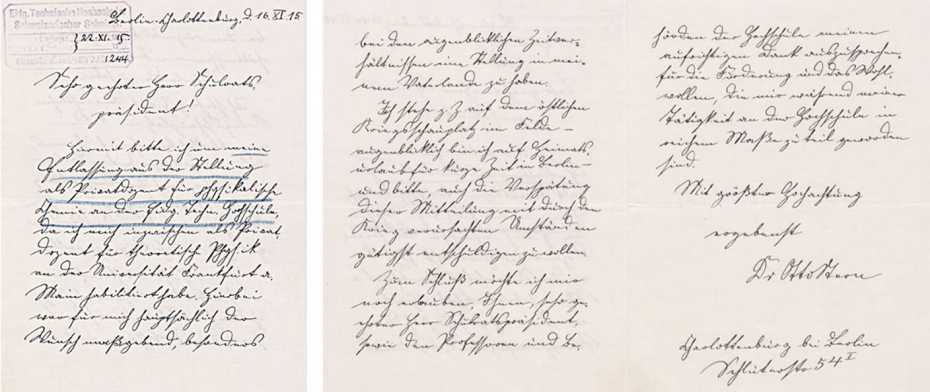 Eidg. Technische Hochschule
Schweizerischer Schulrat
22. XI. 15
1244
Berlin-Charlottenburg, d. 16. XI. 15
Sehr geehrter Herr Schulrats-
präsident!
Hiermit bitte ich um meine
Entlassung aus der Stellung
als Privatdozent für physikalische
Chemie an der Eidg. Techn. Hochschule,
da ich mich inzwischen als Privat-
dozent für theoretische Physik
an der Universität Frankfurt a.
Main habilitiert habe. Hierbei
war für mich hauptsächlich der
Wunsch maßgebend, besonders
bei den augenblicklichen Zeitver-
hältnissen eine Stellung in mei-
nem Vaterlande zu haben.
Ich stehe z. Z. auf dem östlichen
Kriegsschauplatz im Felde –
augenblicklich bin ich auf Heimats-
urlaub für kurze Zeit in Berlin –
und bitte, auch die Verspätung
dieser Mitteilung mit durch den
Krieg verursachten Umständen
gütigst entschuldigen zu wollen.
Zum Schluß möchte ich mir
noch erlauben, Ihnen, sehr ge-
ehrter Herr Schulratspräsident,
sowie den Professoren und Be-
hörden der Hochschule meinen
aufrichtigen Dank auszusprechen
für die Förderung und das Wohl-
wollen, die mir während meiner
Tätigkeit an der Hochschule in
reichem Maße zu teil geworden
sind.
Mit größter Hochachtung
ergebenst
Dr Otto Stern
Charlottenburg bei Berlin
Schlüterstr 54 I